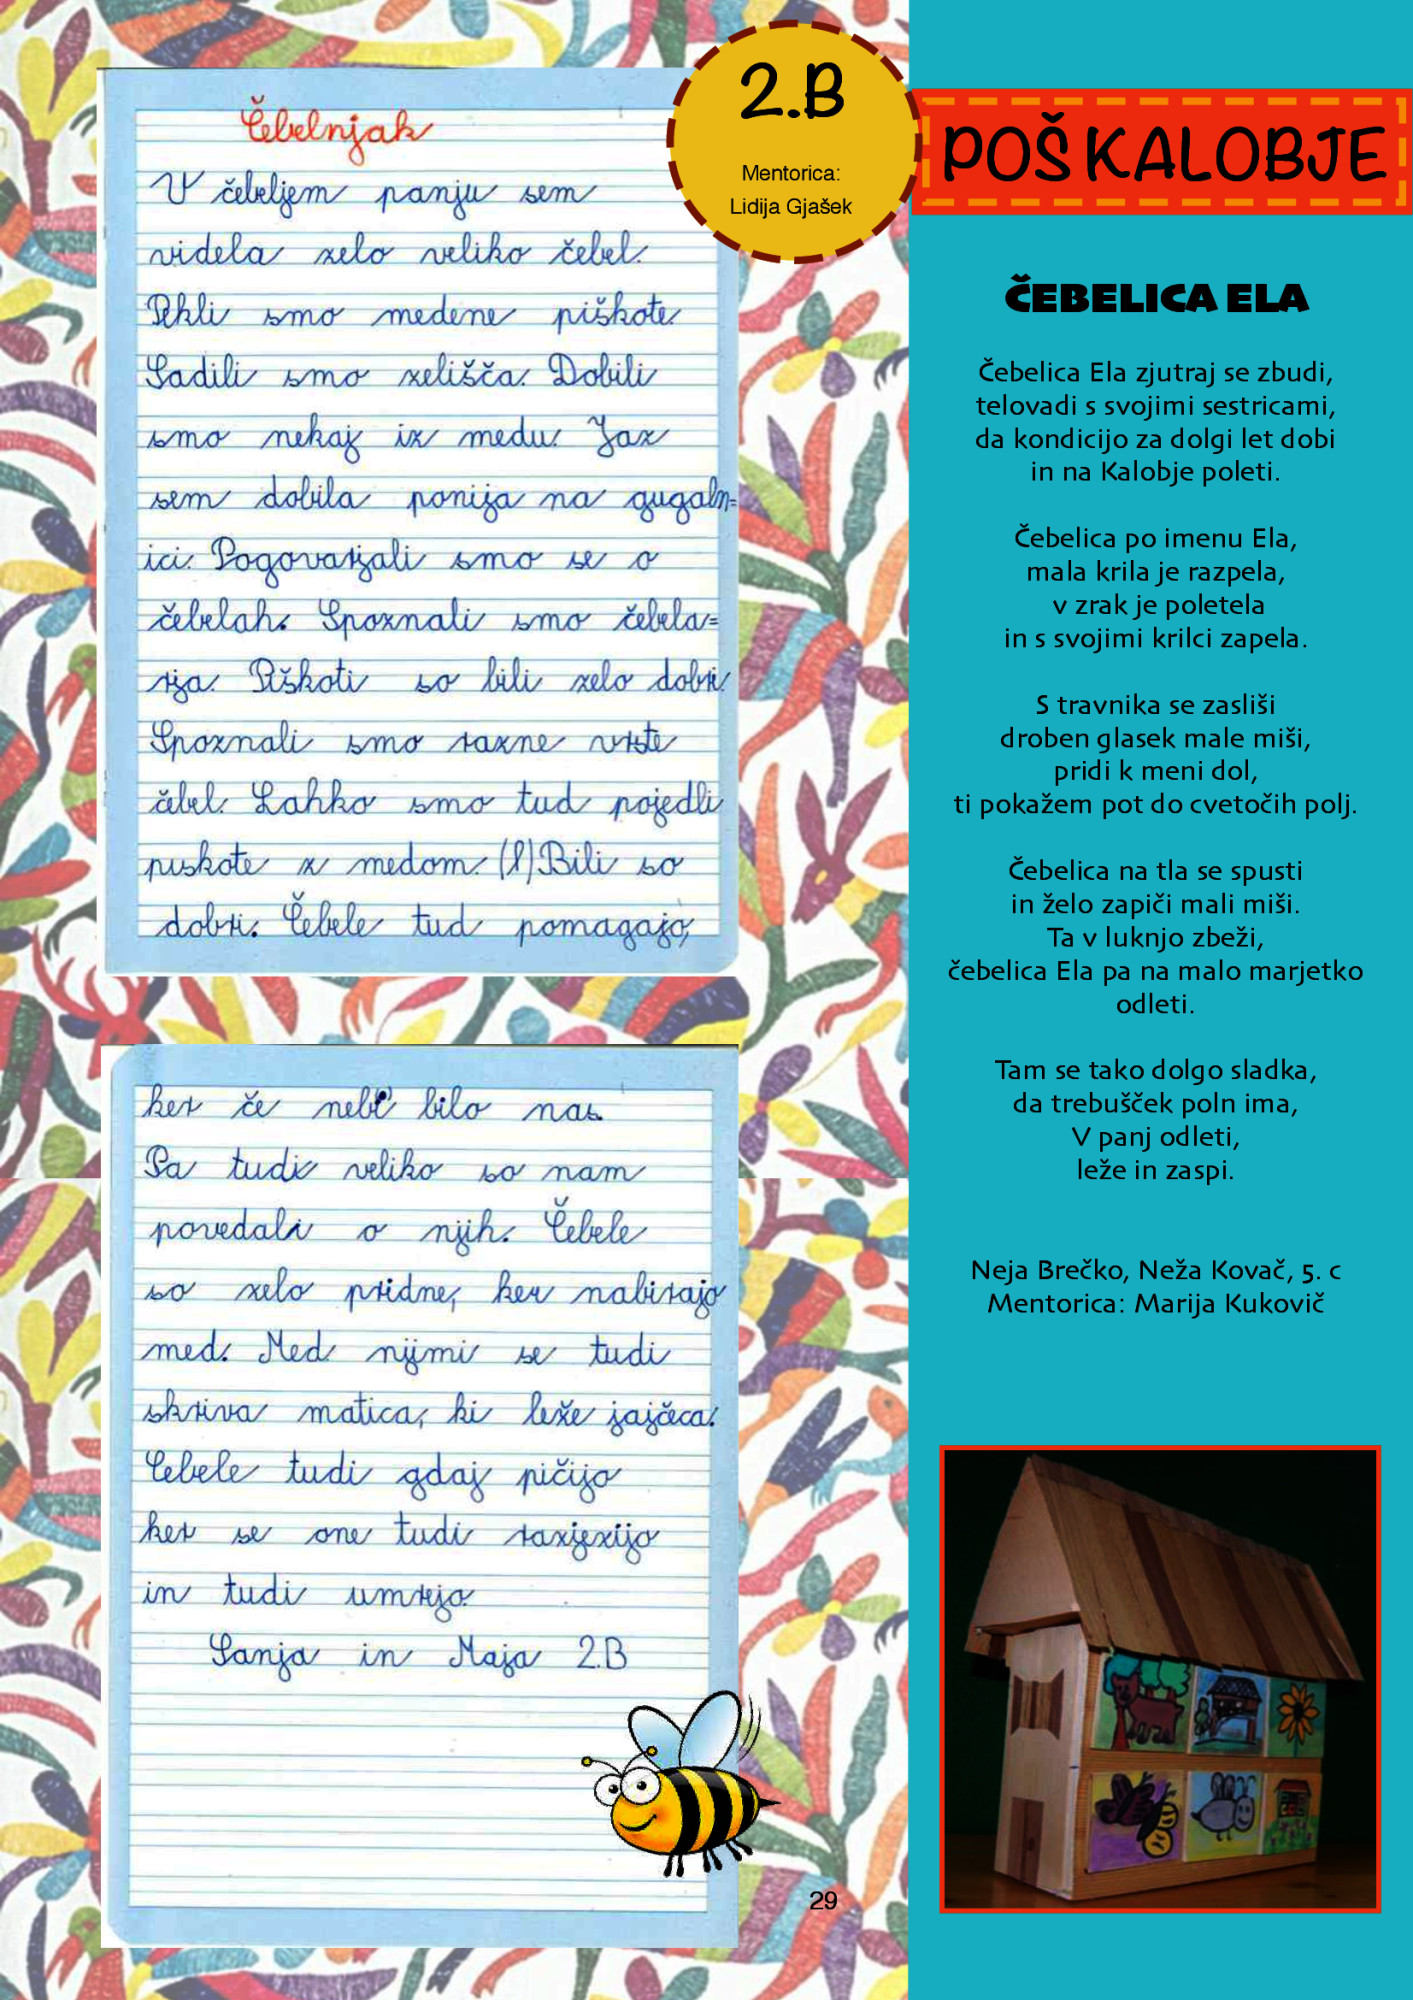 2.B
Mentorica:
Lidija Gjašek
Čebelnjak
V čebeljem panju sem
videla zelo veliko čebel.
Pekli smo medene piškote.
Sadili smo zelišča. Dobili
smo nekaj iz medu. Jaz
sem dobila ponija na gugaln=
ici. Pogovarjali smo se o
čebelah. Spoznali smo čebela=
rja. Piškoti so bili zelo dobri.
Spoznali smo razne vrste
čebel. Lahko smo tud pojedli
piskote z medom. (l) Bili so
dobri. Čebele tud pomagajo,
ker če nebi bilo nas.
Pa tudi veliko so nam
povedali o njih. Čebele
so zelo pridne, ker nabirajo
med. Med njimi se tudi
skriva matica, ki leže jajčeca.
Čebele tudi gdaj pičijo
ker se one tudi razjezijo
in tudi umrejo.
Sanja in Maja 2.B
29
POŠ KALOBJE
ČEBELICA ELA
Čebelica Ela zjutraj se zbudi,
telovadi s svojimi sestricami,
da kondicijo za dolgi let dobi
in na Kalobje poleti.
Čebelica po imenu Ela,
mala krila je razpela,
v zrak je poletela
in s svojimi krilci zapela.
S travnika se zasliši
droben glasek male miši,
pridi k meni dol,
ti pokažem pot do cvetočih polj.
Čebelica na tla se spusti
in želo zapiči mali miši.
Ta v luknjo zbeži,
čebelica Ela pa na malo marjetko
odleti.
Tam se tako dolgo sladka,
da trebušček poln ima,
V panj odleti,
leže in zaspi.
Neja Brečko, Neža Kovač, 5. c
Mentorica: Marija Kukovič